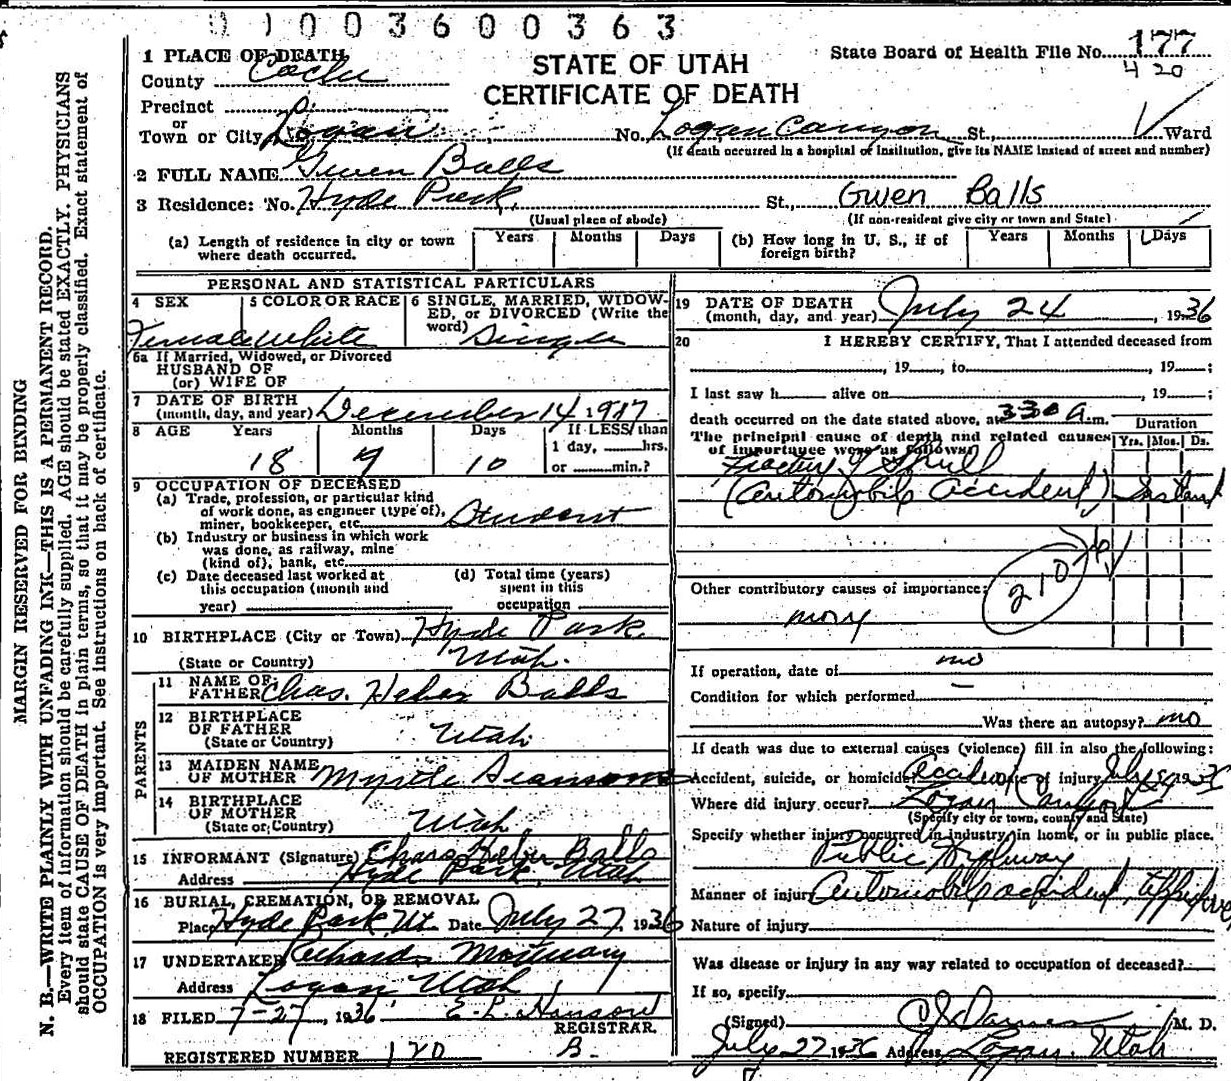 0 1 0 0 3 6 0 0 3 6 3
State Board of Health File No. 177
420
STATE OF UTAH
CERTIFICATE OF DEATH
1 PLACE OF DEATH
County Cache
Precinct
or
Town or City Logan No. Logan Canyon St., Ward
(If death occurred in a hospital or institution, give its NAME instead of street and number)
2 FULL NAME Gwen Balls
3 Residence: No. Hyde Park. St., Gwen Balls
(Usual place of abode) (If non-resident give city or town and State)
(a) Length of residence in city or town where death occurred. Years Months Days (b) How long in U. S., if of foreign birth? Years Months Days
PERSONAL AND STATISTICAL PARTICULARS
4 SEX Female
5 COLOR OR RACE White
6 SINGLE, MARRIED, WIDOWED, or DIVORCED (Write the word) Single
6a If Married, Widowed, or Divorced
HUSBAND OF
(or) WIFE OF
7 DATE OF BIRTH
(month, day, and year) December 14 1917
8 AGE Years Months Days If LESS than
1 day, hrs.
or min.?
18 10
9 OCCUPATION OF DECEASED
(a) Trade, profession, or particular kind
of work done, as engineer (type of),
miner, bookkeeper, etc. Student
(b) Industry or business in which work
was done, as railway, mine
(kind of), bank, etc.
(c) Date deceased last worked at
this occupation (month and
year)
(d) Total time (years)
spent in this
occupation
10 BIRTHPLACE (City or Town) Hyde Park.
(State or Country) Utah.
PARENTS
11 NAME OF
FATHER Chas. Heber Balls
12 BIRTHPLACE
OF FATHER
(State or Country) Utah
13 MAIDEN NAME
OF MOTHER Myrtle
14 BIRTHPLACE
OF MOTHER
(State or Country) Utah
15 INFORMANT (Signature) Chas Heber Balls
Address Hyde Park, Utah
16 BURIAL, CREMATION, OR REMOVAL
Place Hyde Park Ut. Date July 27, 1936
17 UNDERTAKER Richards Mortuary
Address Logan Utah
18 FILED 7-27, 1936 E. L. Hanson
REGISTRAR.
REGISTERED NUMBER 120 B.
19 DATE OF DEATH
(month, day, and year) July 24, 1936
20 I HEREBY CERTIFY, That I attended deceased from
, 19 , to , 19 ;
I last saw h alive on , 19 ;
death occurred on the date stated above, at 330 a.m.
The principal cause of death and related causes
of importance were as follows:
Duration
Yrs. Mos. Ds.
Skull
(automobile accident) Instant
210
Other contributory causes of importance:
none
If operation, date of no
Condition for which performed —
Was there an autopsy? no
If death was due to external causes (violence) fill in also the following:
Accident, suicide, or homicide? Accident Date of injury July 1936
Where did injury occur? Logan Canyon
(Specify city or town, county and State)
Specify whether injury occurred in industry, in home, or in public place.
Public Highway
Manner of injury Automobile accident,
Nature of injury
Was disease or injury in any way related to occupation of deceased?
If so, specify
(Signed) M. D.
July 27 1936 Address Logan. Utah
MARGIN RESERVED FOR BINDING
N. B.—WRITE PLAINLY WITH UNFADING INK—THIS IS A PERMANENT RECORD.
Every item of information should be carefully supplied. AGE should be stated EXACTLY. PHYSICIANS
should state CAUSE OF DEATH in plain terms, so that it may be properly classified. Exact statement of
OCCUPATION is very important. See instructions on back of certificate.